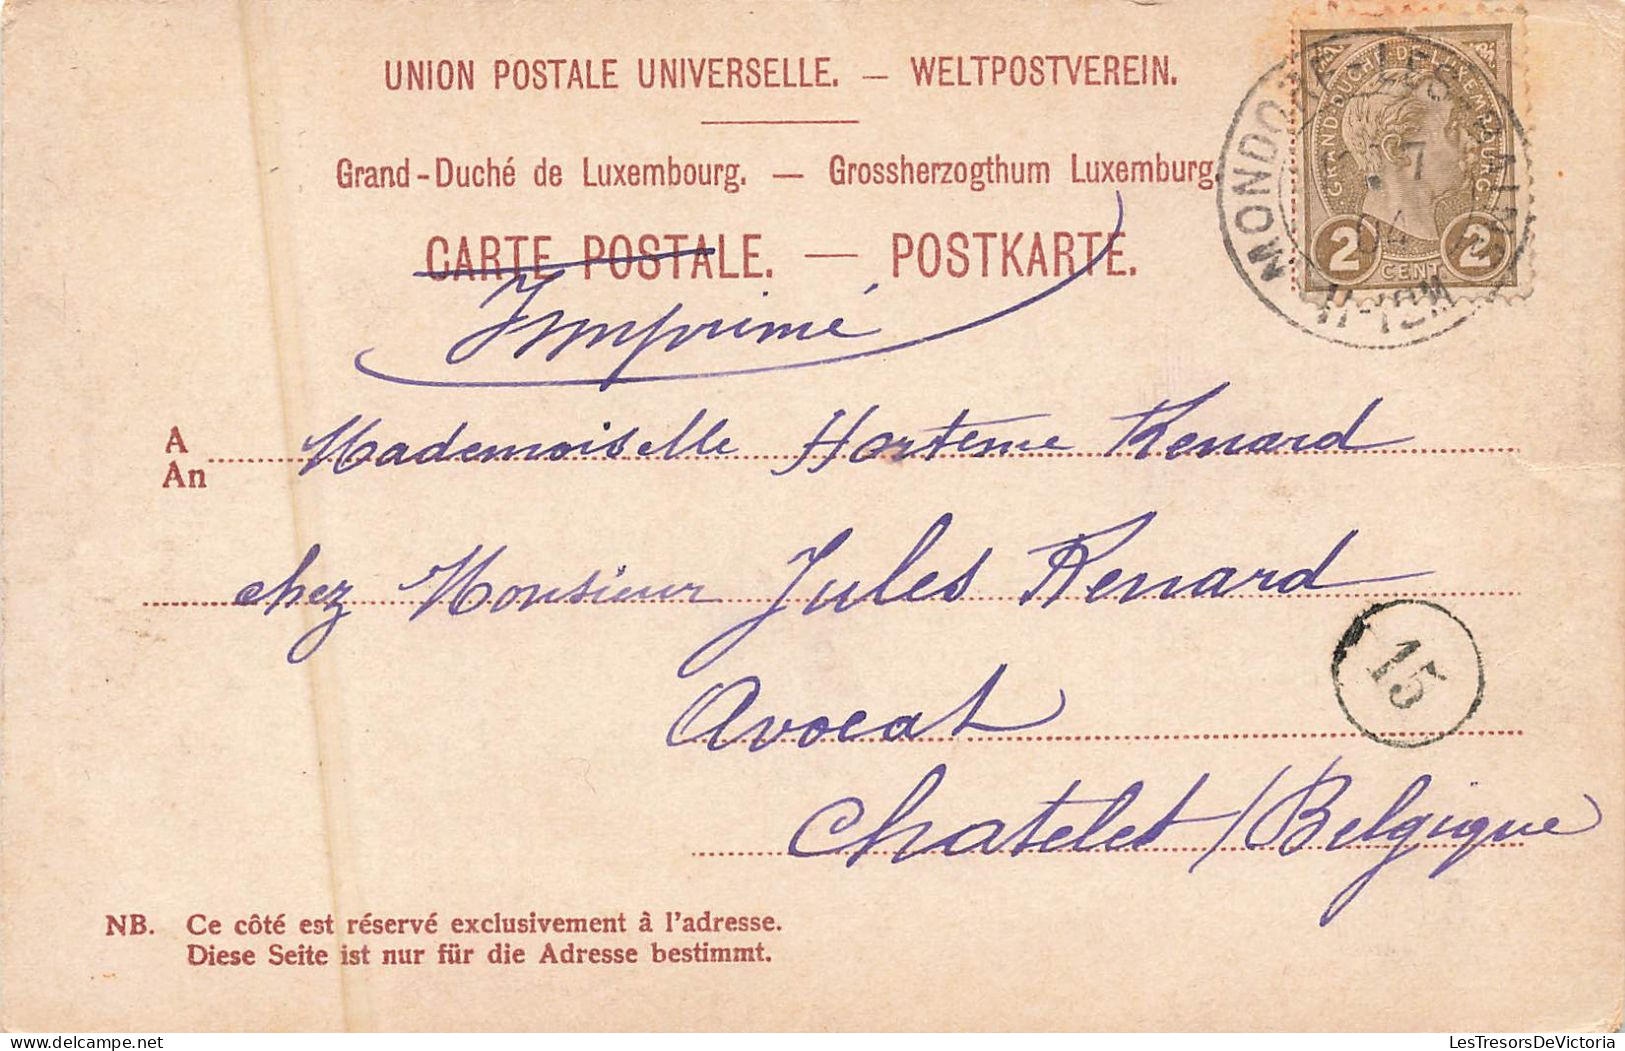 UNION POSTALE UNIVERSELLE. — WELTPOSTVEREIN.
Grand-Duché de Luxembourg. — Grossherzogthum Luxemburg.
CARTE POSTALE. — POSTKARTE.
Imprimé
GRAND-DUCHÉ DE LUXEMBOURG
2 CENT 2
MONDORF-LES-BAINS
7
04
11-12M
A Mademoiselle Hortense Renard
An
chez Monsieur Jules Renard
Avocat
15
Chatelet / Belgique
NB. Ce côté est réservé exclusivement à l'adresse.
Diese Seite ist nur für die Adresse bestimmt.
LesTresorsDeVictoria